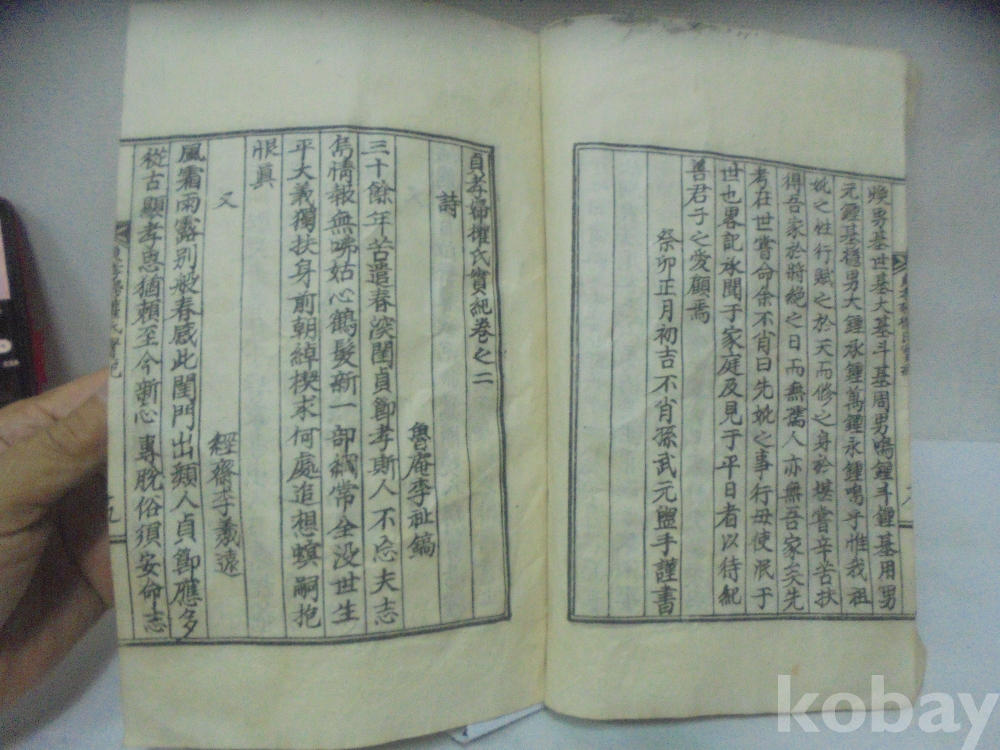 煥男基世基大基斗基周男鳴鍾斗鍾基用男
元鍾基穆男大鍾承鍾萬鍾永鍾鳴乎惟我祖
妣之性行賦之於天而修之身於堪嘗辛苦扶
得吾家於將絶之日而無孺人亦無吾家矣先
考在世嘗命余不肖曰先妣之事行毋使泯于
世也畧記承聞于家庭及見于平日者以待紀
善君子之愛顧焉
癸卯正月初吉不肖孫武元盥手謹書
貞孝婦權氏實紀卷之二
詩
魯庵李祉鎬
三十餘年苦遣春深閨貞節孝斯人不忘夫志
烏情報無咈姑心鶴髮新一部綱常全没世生
平大義獨扶身前朝綽楔求何處追想螟嗣抱
眼眞
又
經齋李義遠
風霜雨露别般春感此閨門出類人貞節應多
從古顯孝思猶賴至今新心專脫俗須安命志
九
kobay